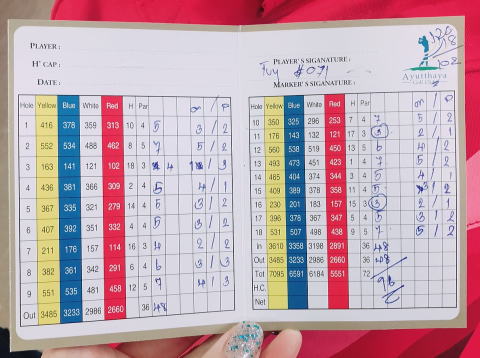 PLAYER :
H' CAP :
DATE :
Hole Yellow Blue White Red H Par
1 416 378 359 313 10 4 5 3/2
2 552 534 488 462 8 5 7 5/2
3 163 141 121 102 18 3 4 /3
4 436 381 366 309 2 4 5 4/1
5 367 335 321 279 14 4 5 3/2
6 407 392 351 332 4 4 5 3/2
7 211 176 157 114 16 3 4 2/2
8 382 361 342 291 6 4 6 3/3
9 551 535 481 458 12 5 7 4/3
Out 3485 3233 2986 2660 36 48
PLAYER'S SIGANATURE :
#071
MARKER'S SIGANATURE :
Ayutthaya
Golf Club
18
102
10 350 325 296 253 7 4 7 5/2
11 176 143 132 121 17 3 3 2/1
12 560 538 519 450 13 5 6 4/2
13 493 473 451 423 1 4 7 5/2
14 465 404 374 344 3 4 5 4/1
15 409 389 358 358 11 4 5 3/2
16 230 201 183 157 15 3 3 2/1
17 396 378 367 347 5 4 5 3/2
18 531 507 498 438 9 5 7 5/2
In 3610 3358 3198 2891 36 48
Out 3485 3233 2986 2660 36 48
Tot 7095 6591 6184 5551 72
H.C.
Net